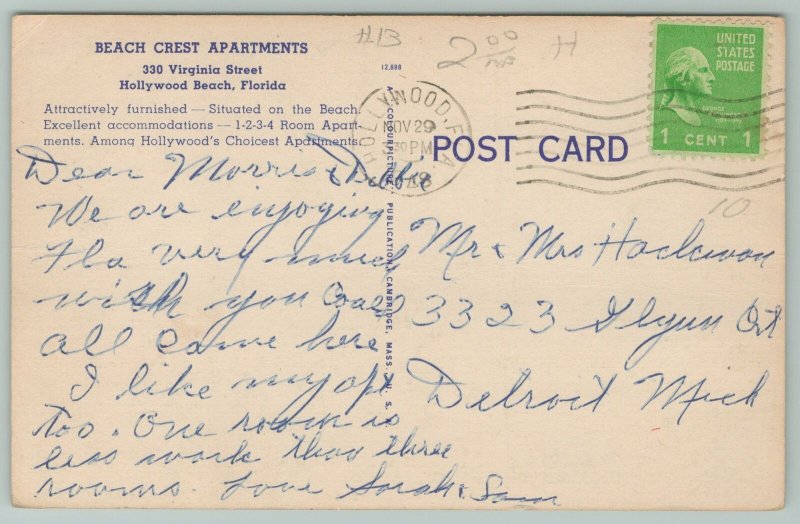 BEACH CREST APARTMENTS
330 Virginia Street
Hollywood Beach, Florida
Attractively furnished — Situated on the Beach.
Excellent accommodations — 1-2-3-4 Room Apart-
ments. Among Hollywood's Choicest Apartments.
#13
2 00
H
12,888
HOLLYWOOD, FLA.
NOV 29
30 PM
UNITED
STATES
POSTAGE
GEORGE
1 CENT 1
POST CARD
A COLOURPICTURE PUBLICATION, CAMBRIDGE, MASS. U. S.
10
Dear Morris &
We are enjoying
Fla very much
wish you
all came here
I like my apt
too. One room is
less work than three
rooms. Love Sarah & Sam
Mr & Mrs
3323
Detroit Mich